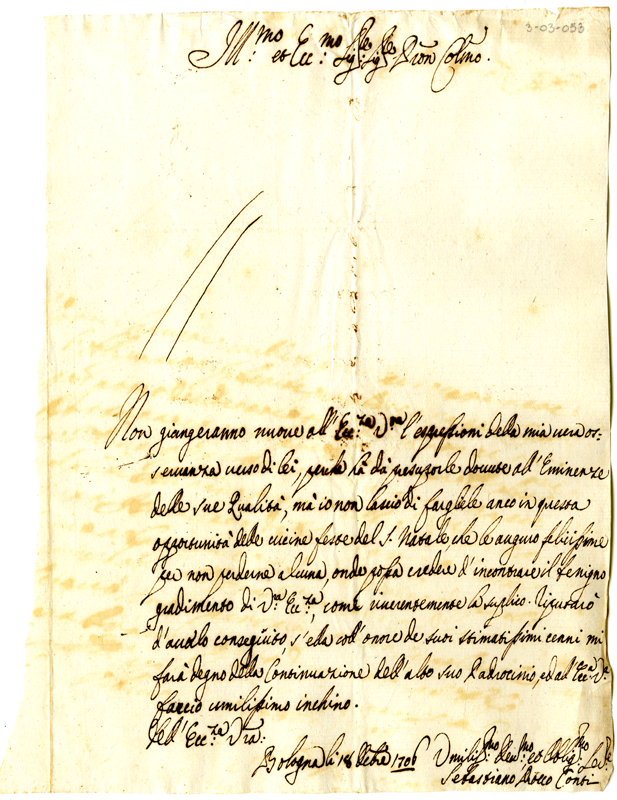 3-03-053
Ill:mo et Ecc:mo Sig:re Sig:re Pron Colmo.
Non giungeranno nuove all'Ecc:za V:ra l'espressioni della mia vera os:
servanza verso di lei, perche la dà presuporle dovute all'Eminenza
delle sue Qualità, mà io non lascio di fargliele anco in questa
opportunità delle vicine feste del S. Natale che le auguro felicissime
per non perderne alcuna, onde possa credere d'incontrare il benigno
gradimento di V:ra Ecc:za, come riverentemente la suplico. Riputarò
d'averlo conseguito, s'ella coll'onore de suoi stimatissimi cenni mi
farà degno della Continuazione dell'alto suo Padrocinio, ed all'Ecc:za V:ra
faccio umilissimo inchino.
Dell'Ecc:za V:ra:
Bologna li 18 Xbre 1706
Umiliss:mo Dev:mo et Oblig:mo
Sebastiano Rocco Conti